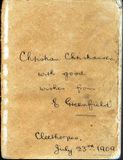 Christian Christiansen,
with good
wishes from
E Greenfield
Cleethorpes,
July 23rd 1909